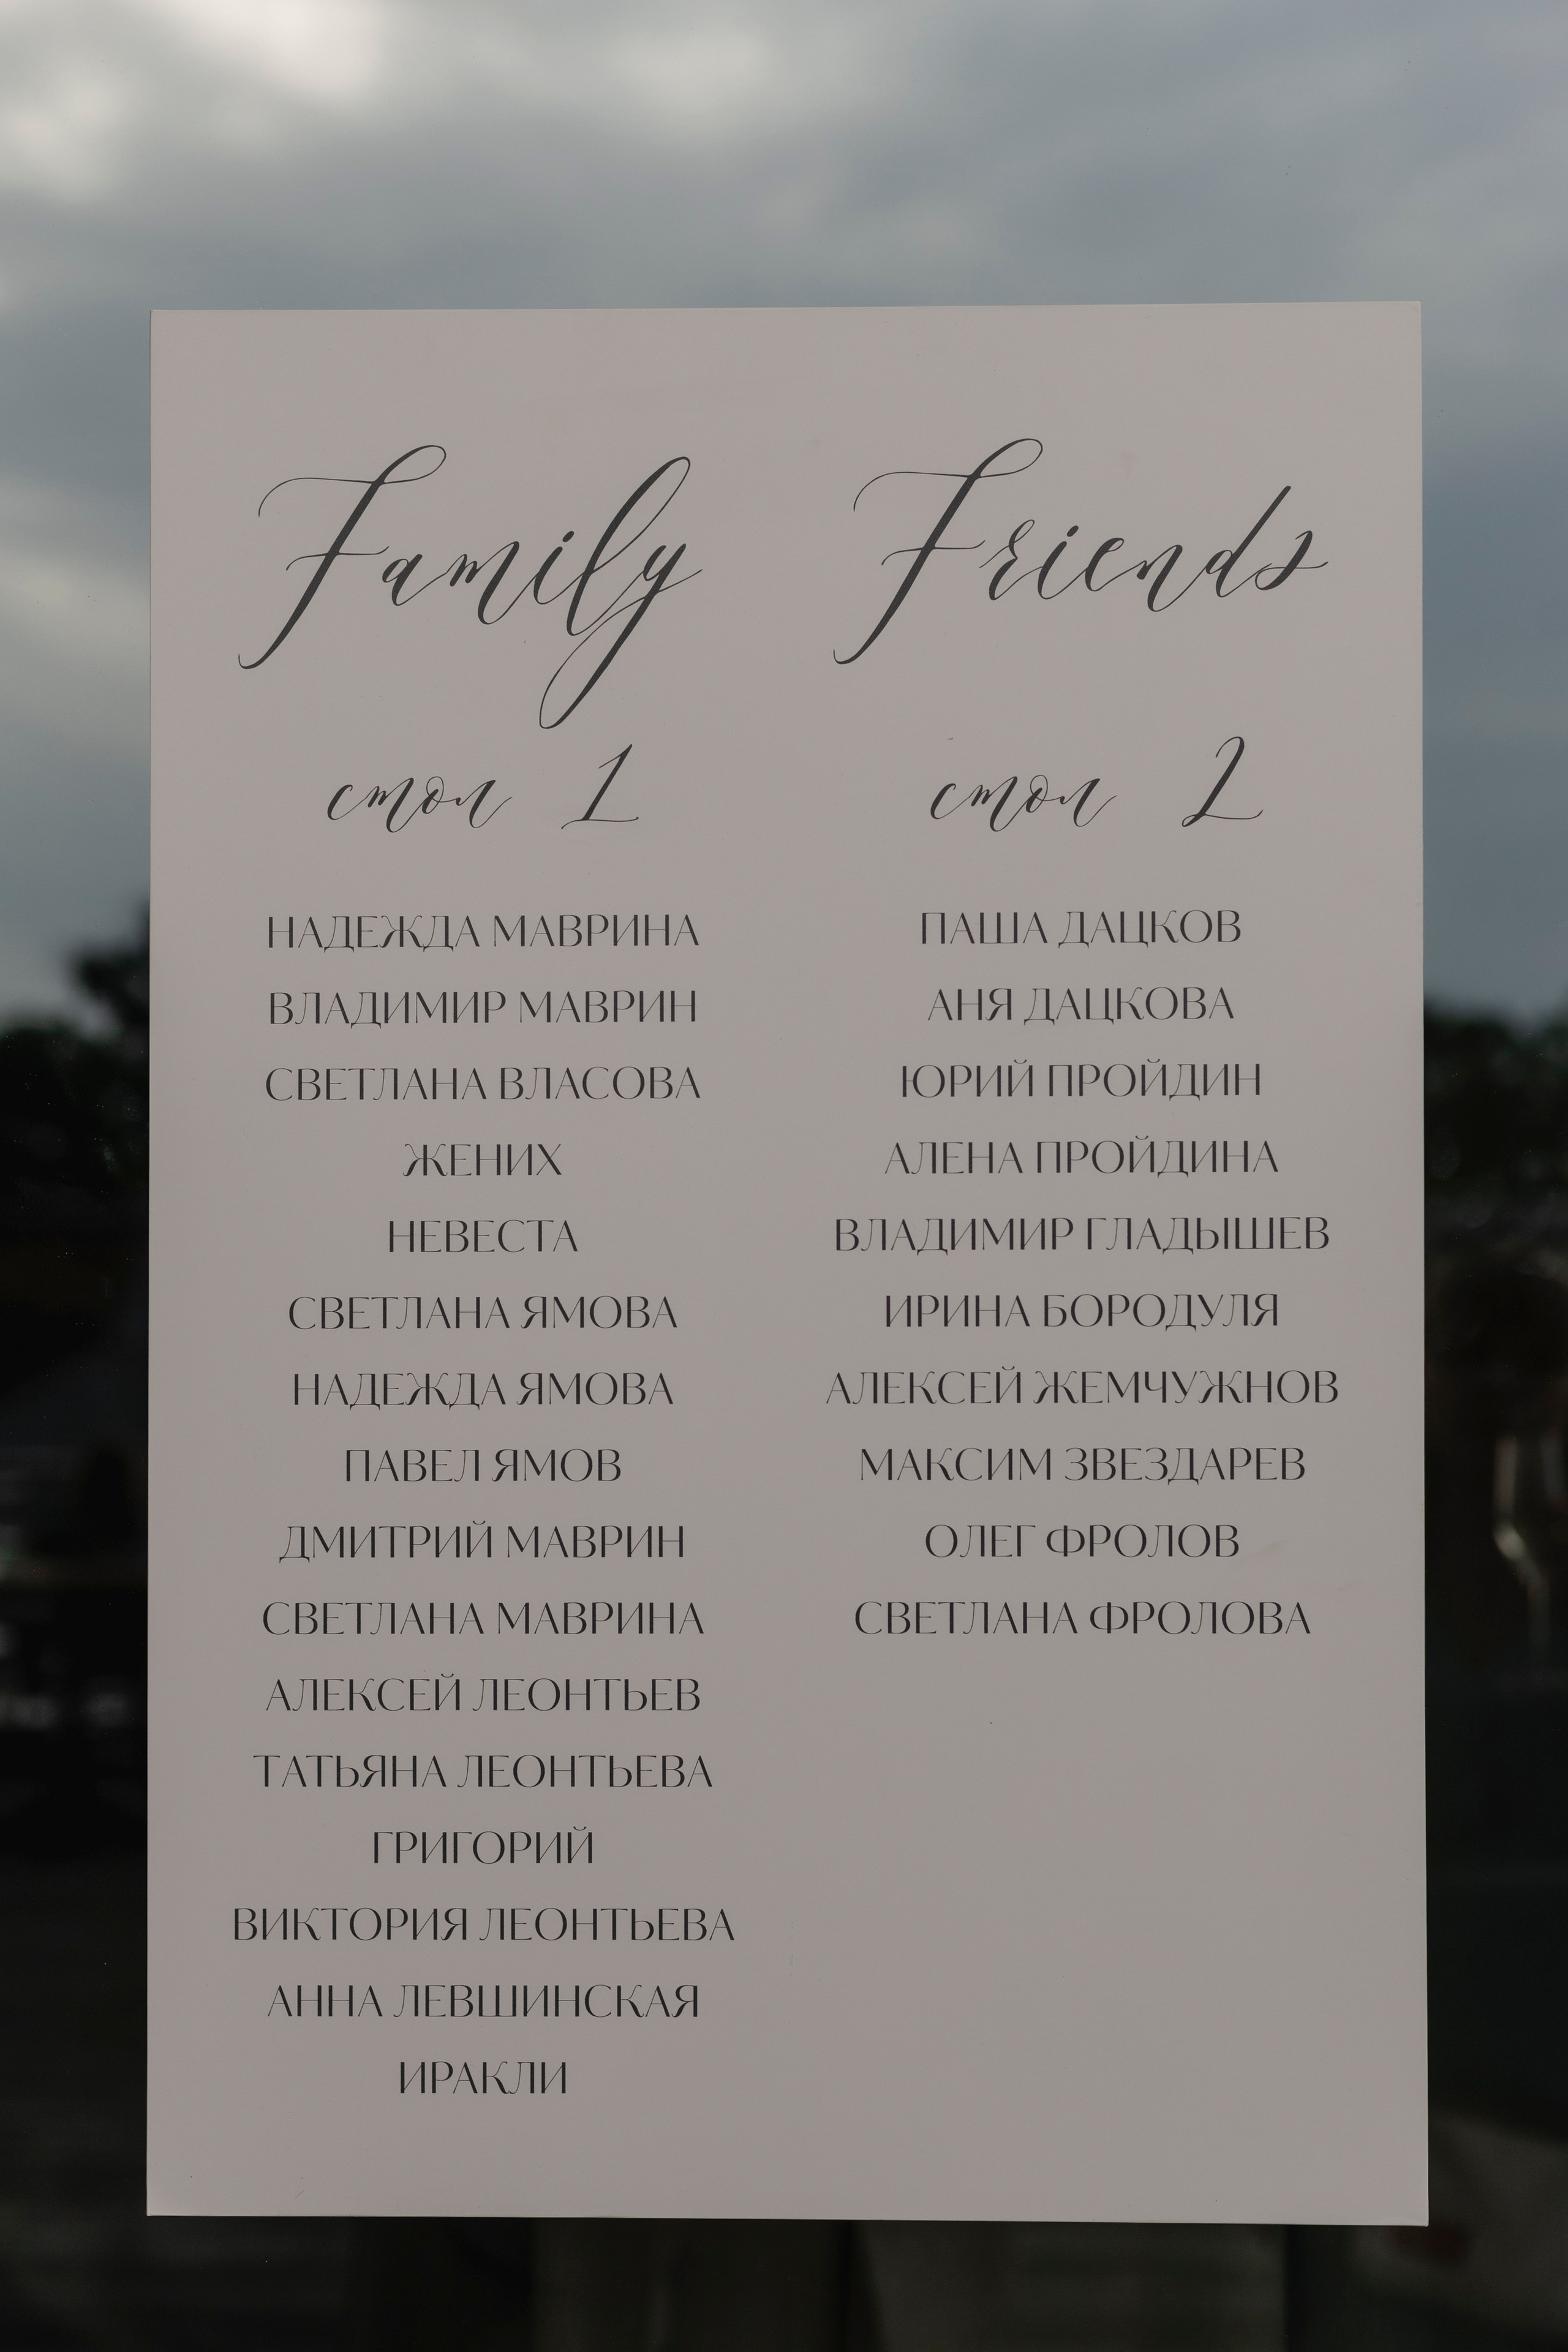 Family
стол 1
НАДЕЖДА МАВРИНА
ВЛАДИМИР МАВРИН
СВЕТЛАНА ВЛАСОВА
ЖЕНИХ
НЕВЕСТА
СВЕТЛАНА ЯМОВА
НАДЕЖДА ЯМОВА
ПАВЕЛ ЯМОВ
ДМИТРИЙ МАВРИН
СВЕТЛАНА МАВРИНА
АЛЕКСЕЙ ЛЕОНТЬЕВ
ТАТЬЯНА ЛЕОНТЬЕВА
ГРИГОРИЙ
ВИКТОРИЯ ЛЕОНТЬЕВА
АННА ЛЕВШИНСКАЯ
ИРАКЛИ
Friends
стол 2
ПАША ДАЦКОВ
АНЯ ДАЦКОВА
ЮРИЙ ПРОЙДИН
АЛЕНА ПРОЙДИНА
ВЛАДИМИР ГЛАДЫШЕВ
ИРИНА БОРОДУЛЯ
АЛЕКСЕЙ ЖЕМЧУЖНОВ
МАКСИМ ЗВЕЗДАРЕВ
ОЛЕГ ФРОЛОВ
СВЕТЛАНА ФРОЛОВА